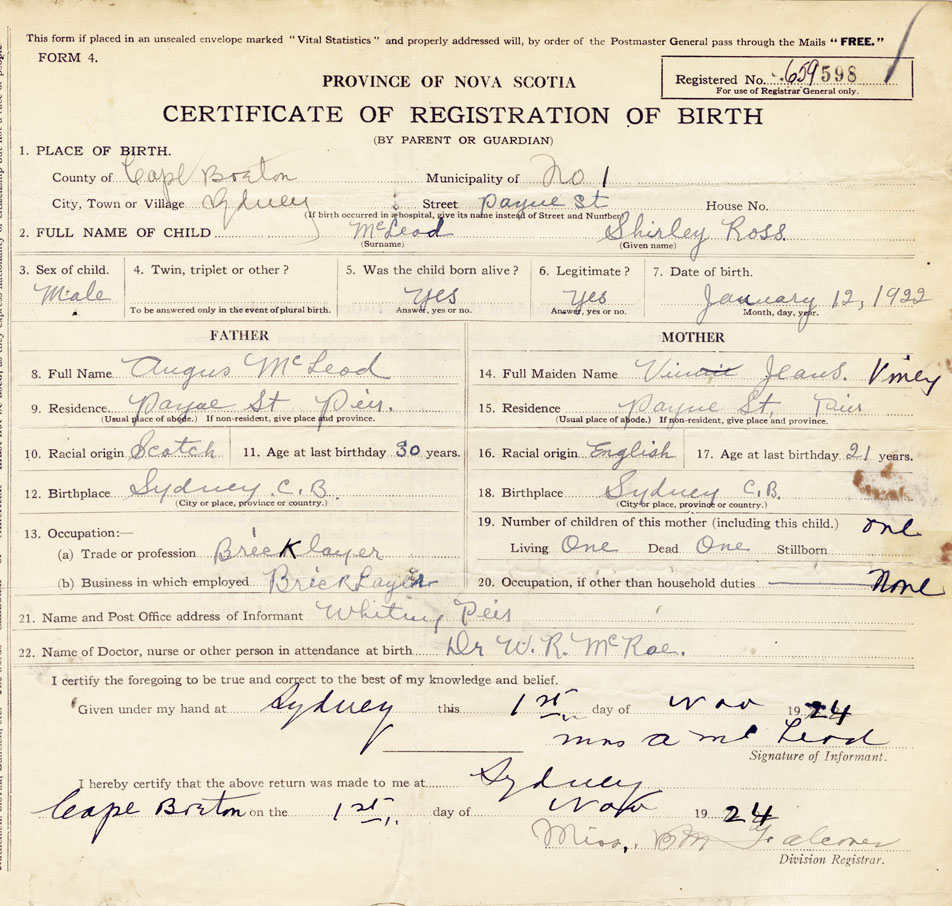 This form if placed in an unsealed envelope marked "Vital Statistics" and properly addressed will, by order of the Postmaster General pass through the Mails "FREE."
FORM 4.
Registered No. 659598
For use of Registrar General only.
PROVINCE OF NOVA SCOTIA
CERTIFICATE OF REGISTRATION OF BIRTH
(BY PARENT OR GUARDIAN)
1. PLACE OF BIRTH.
County of Cape Breton Municipality of No 1
City, Town or Village Sydney Street Payne St House No.
(If birth occurred in a hospital, give its name instead of Street and Number)
2. FULL NAME OF CHILD McLeod Shirley Ross.
(Surname) (Given name)
3. Sex of child. 4. Twin, triplet or other? 5. Was the child born alive? 6. Legitimate? 7. Date of birth.
Male Yes Yes January 12, 1922
To be answered only in the event of plural birth. Answer, yes or no. Answer, yes or no. Month, day, year.
FATHER MOTHER
8. Full Name Angus McLeod 14. Full Maiden Name Jeans. Viney
9. Residence. Payne St Peir. 15. Residence Payne St. Pier
(Usual place of abode.) If non-resident, give place and province. (Usual place of abode.) If non-resident, give place and province.
10. Racial origin Scotch 11. Age at last birthday 30 years. 16. Racial origin English 17. Age at last birthday 21 years.
12. Birthplace Sydney C.B. 18. Birthplace Sydney C.B.
(City or place, province or country.) (City or place, province or country.)
13. Occupation:— 19. Number of children of this mother (including this child.) one
(a) Trade or profession Bricklayer Living One Dead One Stillborn
(b) Business in which employed Brick Layer 20. Occupation, if other than household duties None
21. Name and Post Office address of Informant Whitney Peir
22. Name of Doctor, nurse or other person in attendance at birth Dr W. R. McRae.
I certify the foregoing to be true and correct to the best of my knowledge and belief.
Given under my hand at Sydney this 1st day of Nov 1924
Mrs A McLeod
Signature of Informant.
I hereby certify that the above return was made to me at Sydney
Cape Breton on the 1st. day of Nov 1924
Miss. B M Falconer
Division Registrar.